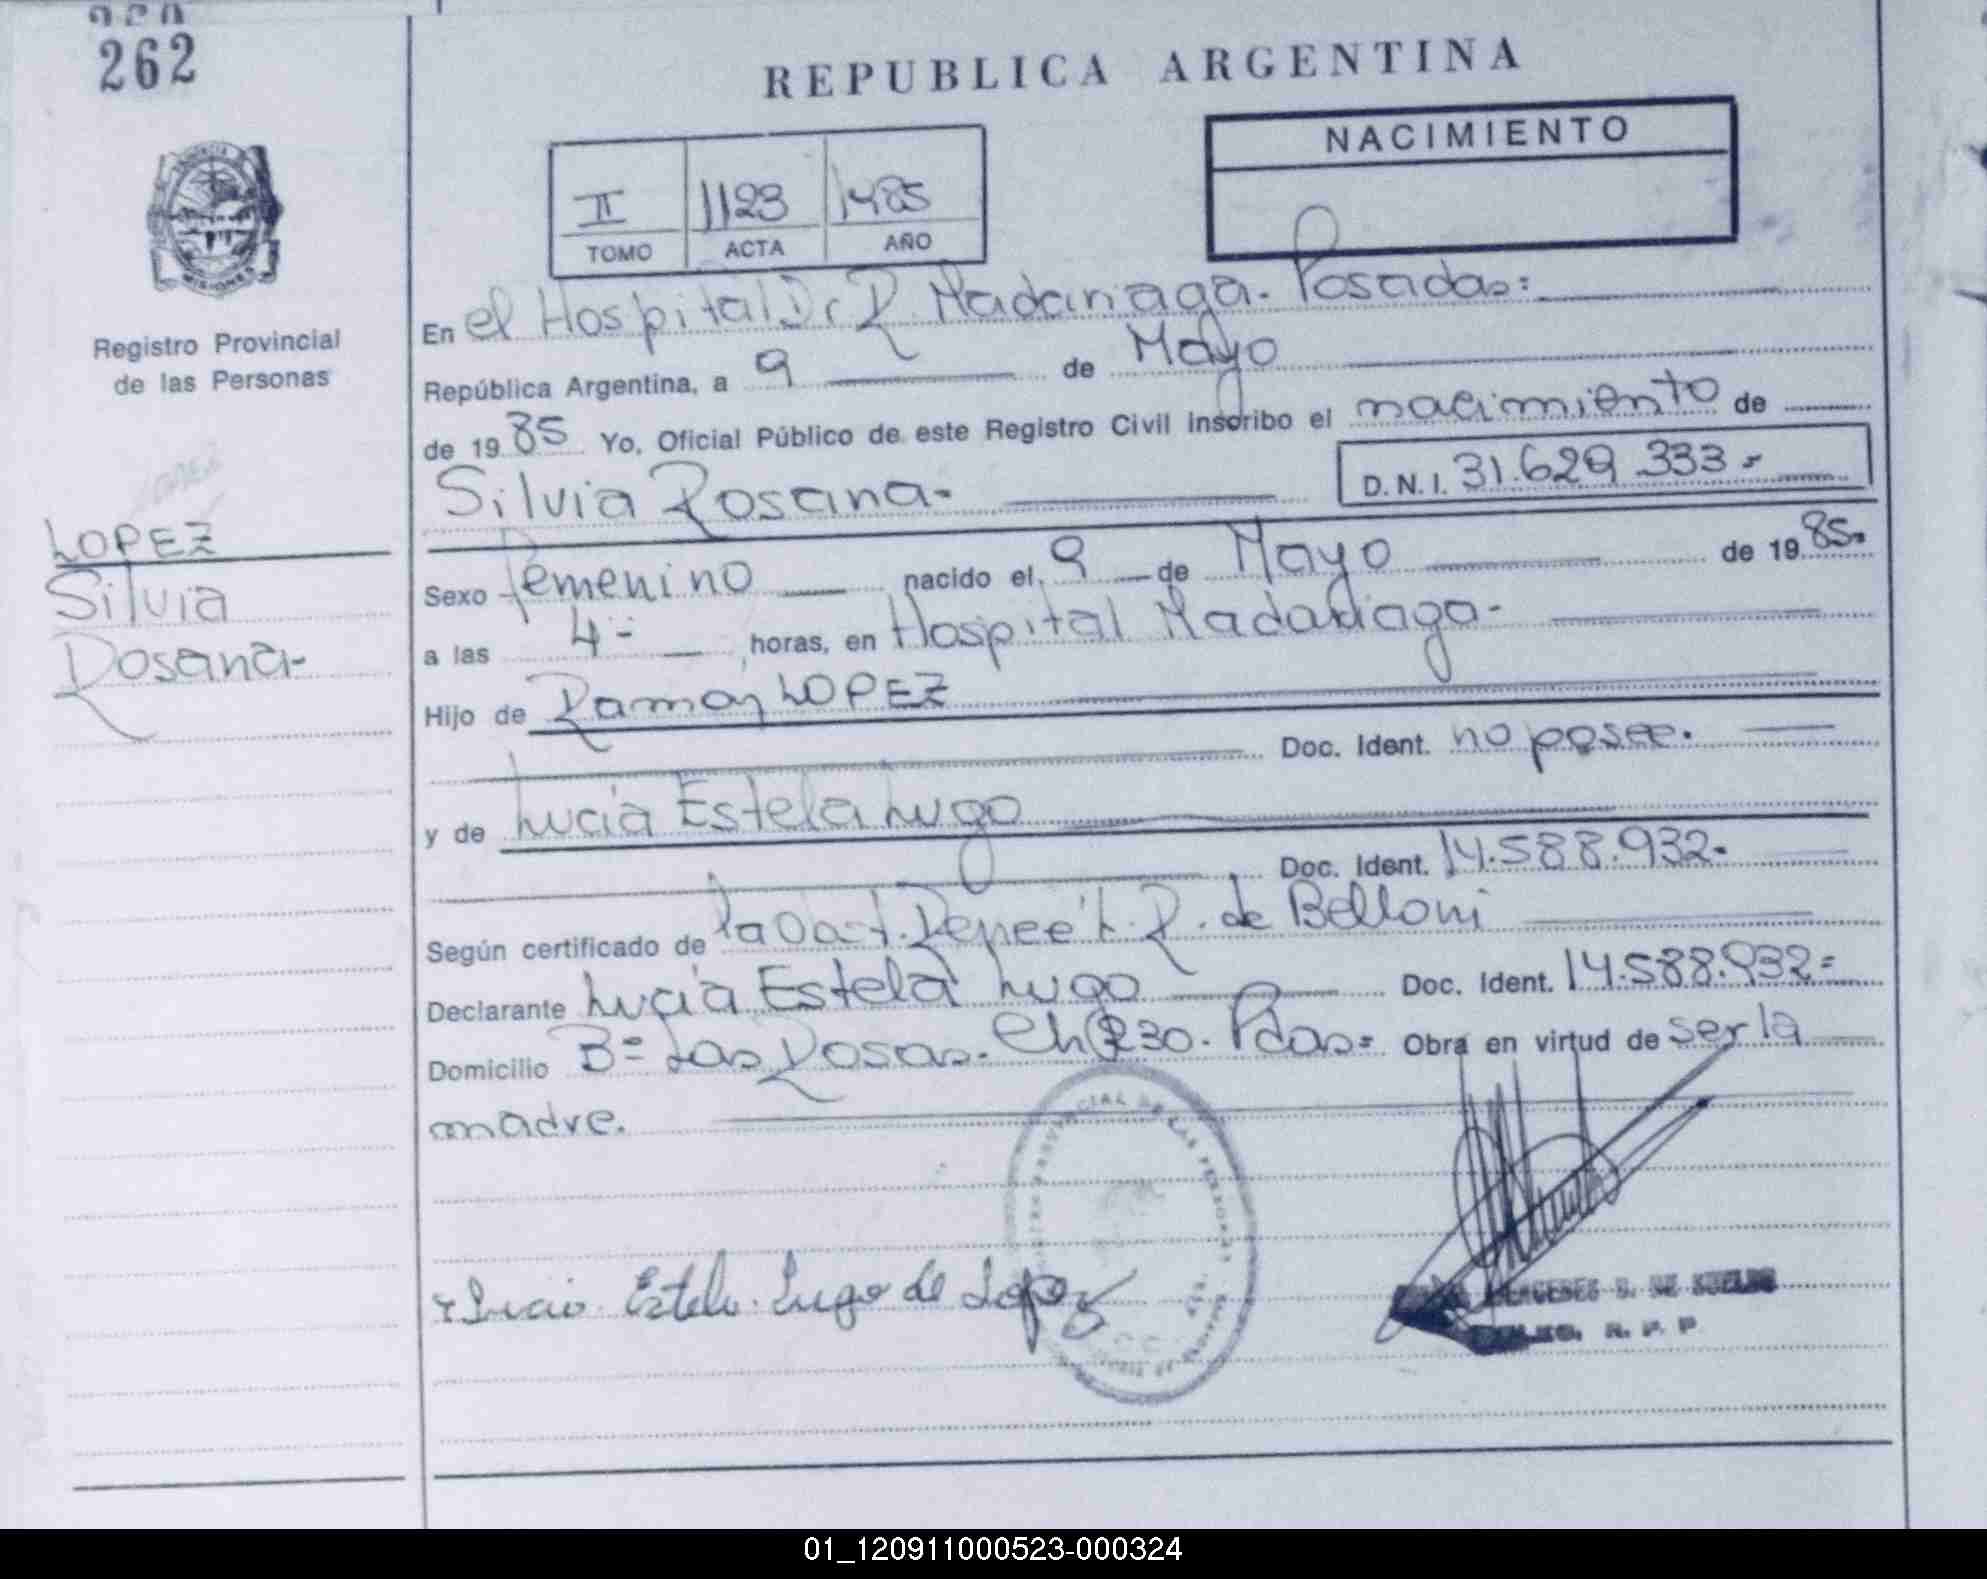 262
REPUBLICA ARGENTINA
NACIMIENTO
II 1123 1985
TOMO ACTA AÑO
PROVINCIA DE
MISIONES
Registro Provincial
de las Personas
LOPEZ
LOPEZ
Silvia
Rosana-
En el Hospital Dr R. Madariaga. Posadas:
República Argentina, a 9 de Mayo
de 19 85 Yo, Oficial Público de este Registro Civil inscribo el nacimiento de
Silvia Rosana- D.N.I. 31.629.333-
Sexo femenino nacido el 9 de Mayo de 19 85-
a las 4- horas, en Hospital Madariaga-
Hijo de Ramon LOPEZ
Doc. Ident. no posee.
y de Lucia Estela Lugo
Doc. Ident. 14.588.932-
Según certificado de la Obst. Renée L. R. de Belloni
Declarante Lucia Estela Lugo Doc. Ident. 14.588.932=
Domicilio B= Las Rosas. Ch 230. Pdas= Obra en virtud de ser la
madre.
PROVINCIAL DE LAS PERSONAS
Lucia Estela Lugo de Lopez
R. P. P
01_120911000523-000324